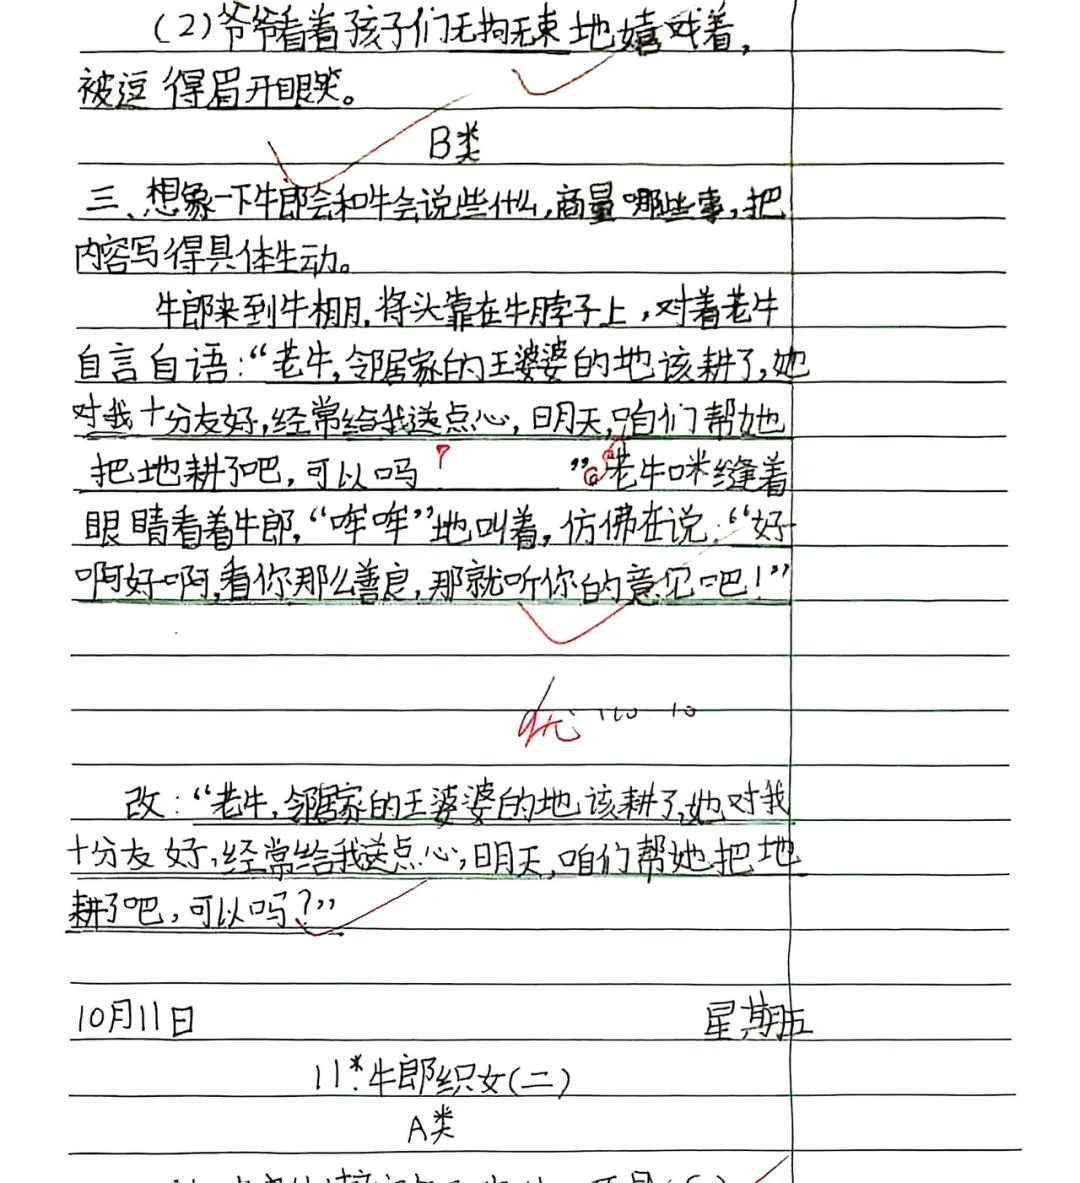 （2）爷爷看着孩子们无拘无束地嬉戏着，
被逗得眉开眼笑。
B类
三、想象一下牛郎会和牛会说些什么，商量哪些事，把
内容写得具体生动。
牛郎来到牛棚，将头靠在牛脖子上，对着老牛
自言自语：“老牛，邻居家的王婆婆的地该耕了，她
对我十分友好，经常给我送点心，明天，咱们帮她
把地耕了吧，可以吗 ？ ”老牛咪缝着
眼睛看着牛郎，“哞哞”地叫着，仿佛在说：“好
啊好啊，看你那么善良，那就听你的意见吧！”
优
改：“老牛，邻居家的王婆婆的地该耕了，她对我
十分友好，经常给我送点心，明天，咱们帮她把地
耕了吧，可以吗？”
10月11日 星期五
11*.牛郎织女（二）
A类